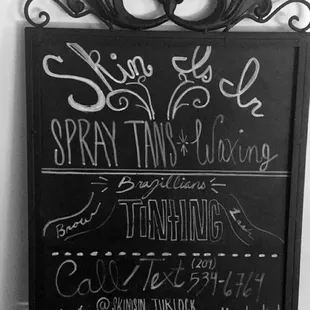 Skin Is In
SPRAY TANS * Waxing
Brazillians
Brow TINTING
Call/Text (209) 534-6764
@SKINISIN_TURLOCK